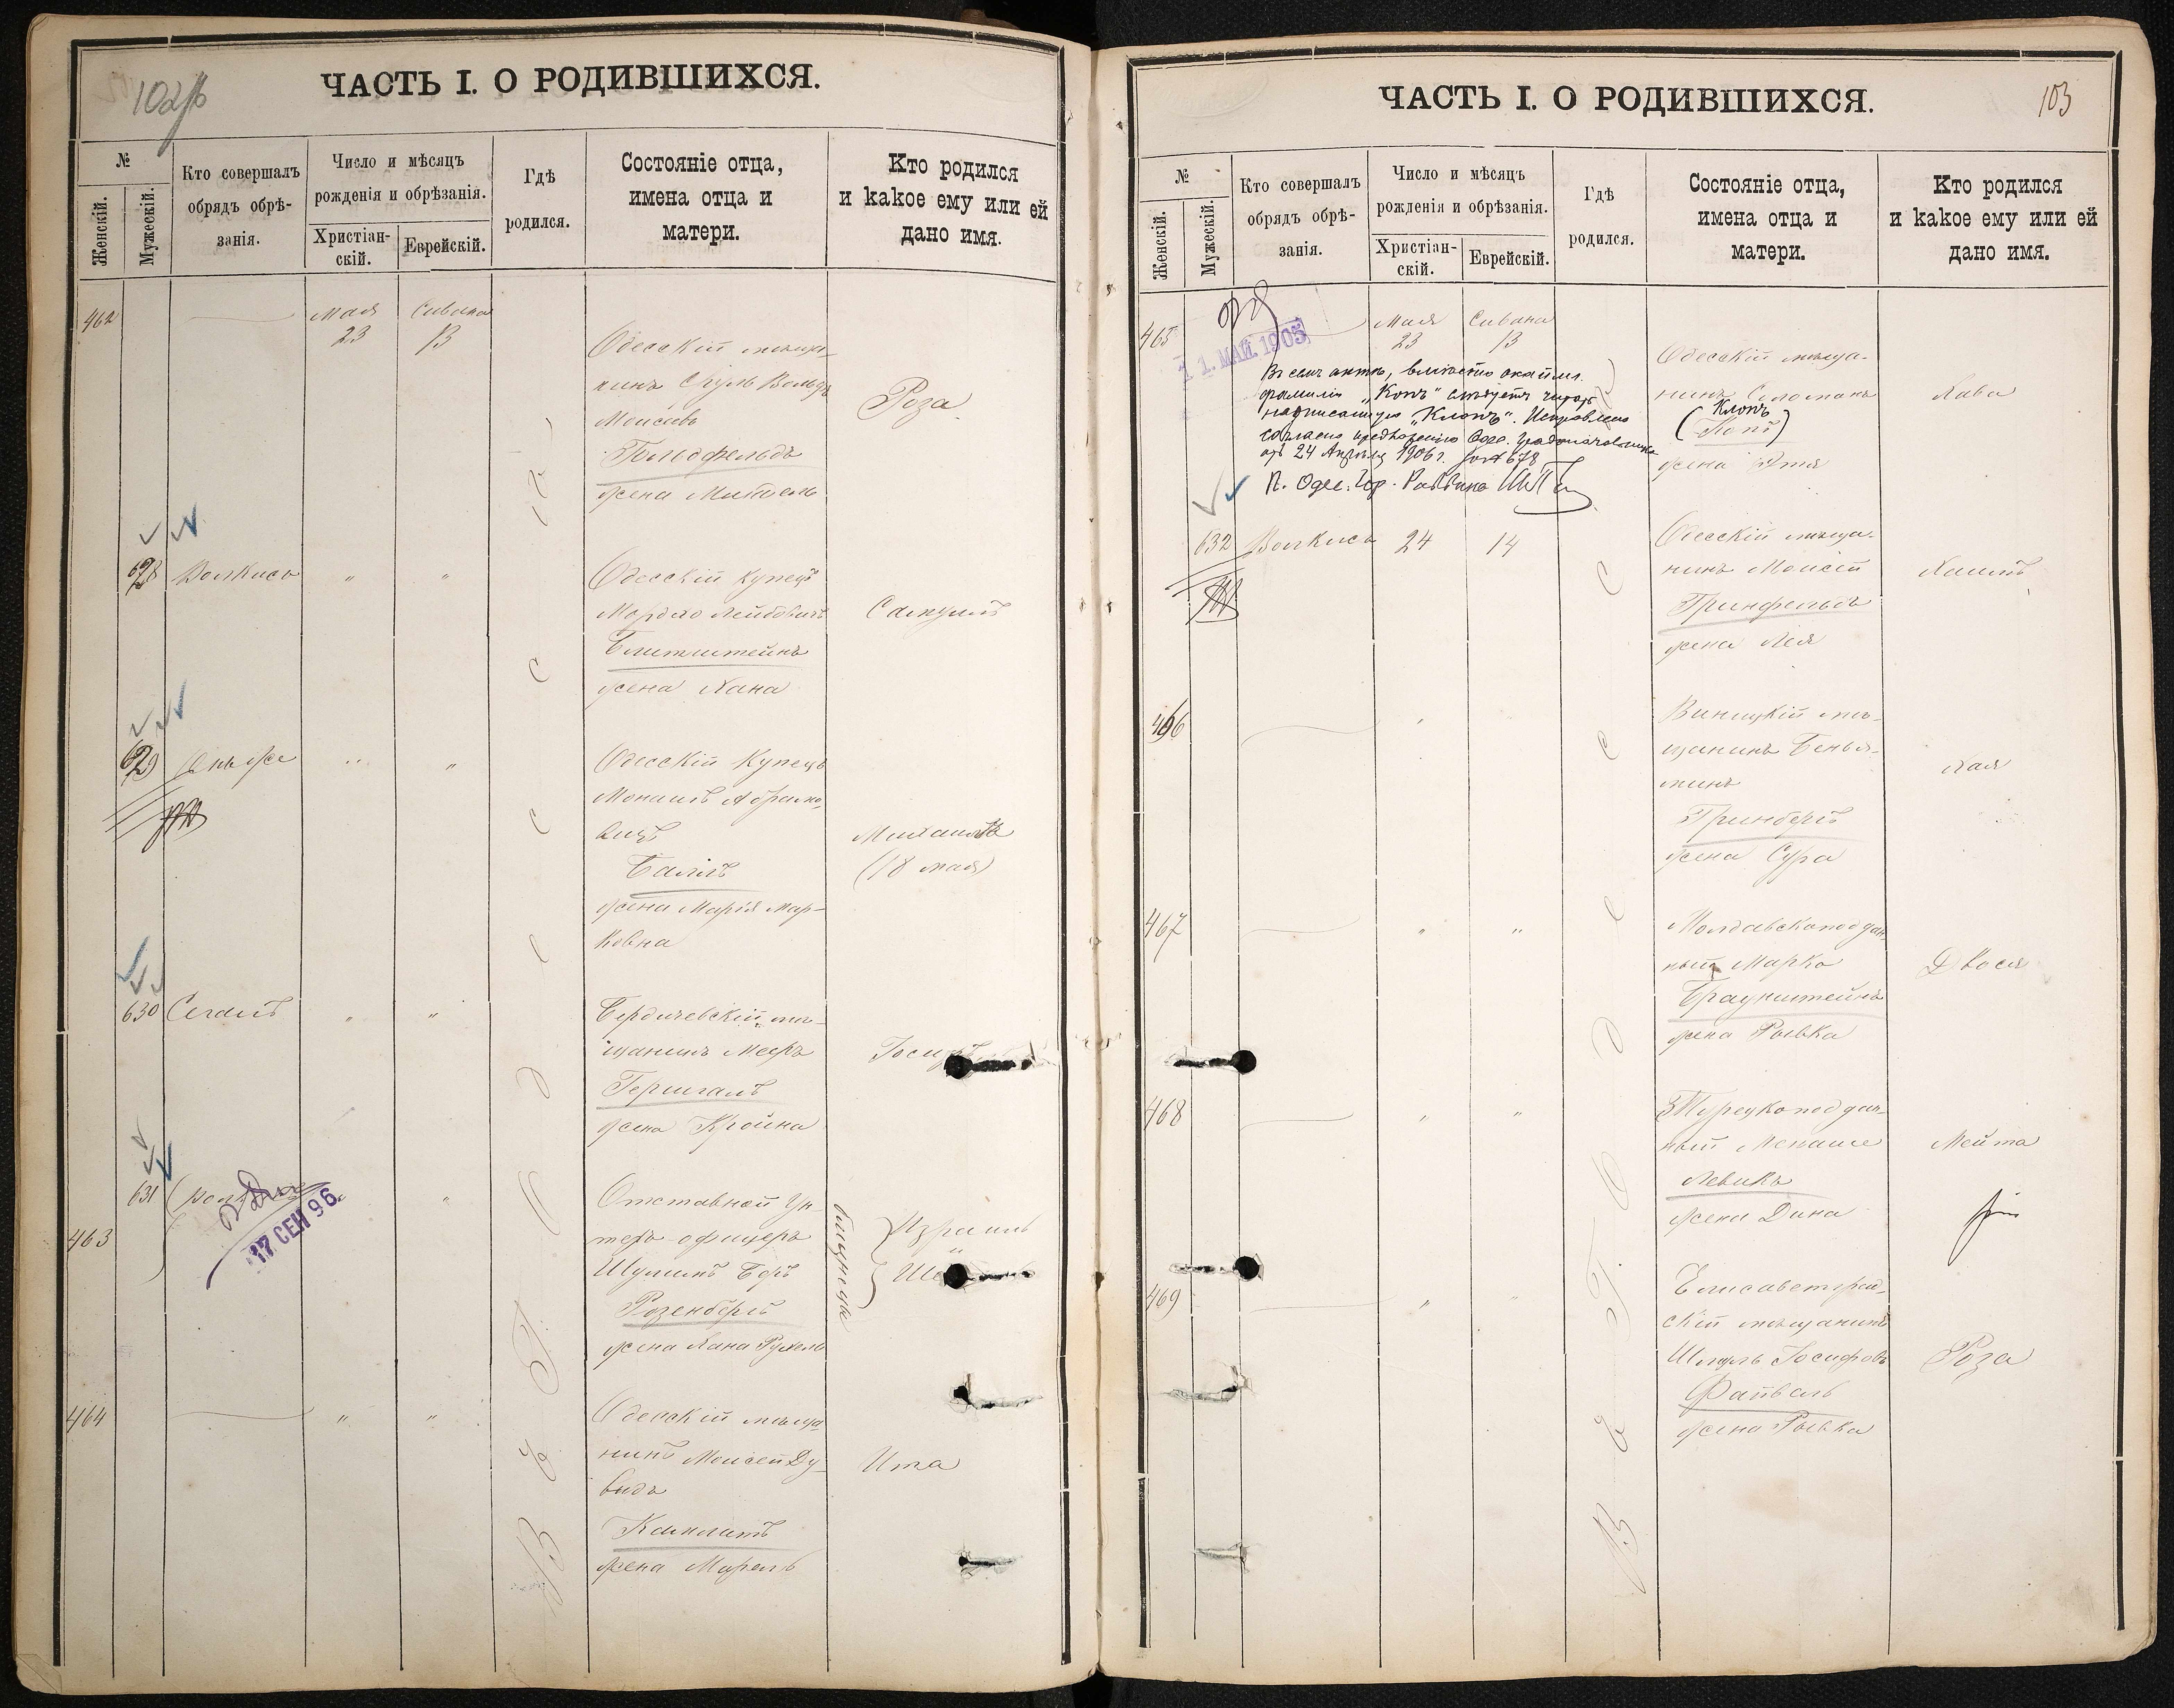 102
ЧАСТЬ I. О РОДИВШИХСЯ.
№
Женскій.
Мужескій.
Кто совершалъ
обрядъ обрѣ-
занія.
Число и мѣсяцъ
рожденія и обрѣзанія.
Христіан-
скій.
Еврейскій.
Гдѣ
родился.
Состояніе отца,
имена отца и
матери.
Кто родился
и какое ему или ей
дано имя.
462
Мая
23
Сивана
13
Одесскій мѣща-
нинъ Сруль Вольфъ
Моисеевъ
Гольдфельдъ
жена Митель
Роза
628
Волкисъ
" "
Одесскій купецъ
Мордко Лейбовичъ
Блитштейнъ
жена Хана
Самуилъ
629
" "
Одесскій Купецъ
Абрамо-
вичъ
жена Марія Мар-
ковна
Михаилъ
(18 мая)
630
Сегалъ
" "
Бердичевскій мѣ-
щанинъ Мееръ
Гершгалъ
жена Кройна
631
463
17 СЕН 96.
"
Отставной Ун-
теръ-офицеръ
Шулимъ Беръ
Розенбергъ
жена Хана Рухель
близнецы
Израиль
464
" "
Одесскій мѣща-
нинъ Моисей Ду-
видъ
Капланъ
жена Мирель
Ита
Въ Одессѣ
103
ЧАСТЬ I. О РОДИВШИХСЯ.
№
Женскій.
Мужескій.
Кто совершалъ
обрядъ обрѣ-
занія.
Число и мѣсяцъ
рожденія и обрѣзанія.
Христіан-
скій.
Еврейскій.
Гдѣ
родился.
Состояніе отца,
имена отца и
матери.
Кто родился
и какое ему или ей
дано имя.
465
11 МАЙ 1905
Мая
23
Сивана
13
Въ семъ актѣ, вмѣсто
фамилія „Копъ" слѣдуетъ читать
надписанную „Клопъ". Исправлено
согласно предложенію Одес. Градоначальника
отъ 24 Апрѣля 1906 г. за № 678
П. Одес. Гор. Раввина
Одесскій мѣща-
нинъ Соломонъ
Клопъ
(Копъ)
жена Этя
Хава
632
Волкисъ
24
14
Одесскій мѣща-
нинъ Моисей
Гринфельдъ
жена Лея
Хаимъ
466
"
Виницкій мѣ-
щанинъ Бенья-
минъ
Гринбергъ
жена Сура
Хая
467
" "
Молдавскоподдан-
ный Марко
Браунштейнъ
жена Ривка
Двося
468
" "
Турецкоподдан-
ный Менаше
Левикъ
жена Дина
Нейта
469
" "
Елисаветград-
скій мѣщанинъ
Шмуль Іосифовъ
Файвель
жена Ривка
Роза
Въ Одессѣ